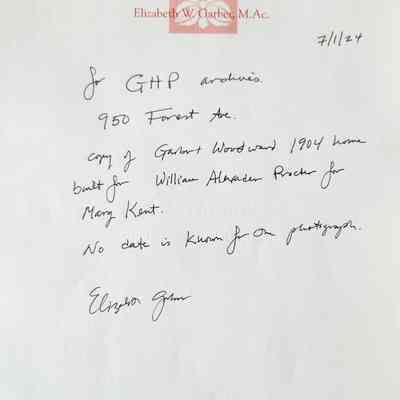 Elizabeth W. Garber, M.Ac.
7/1/24
for GHP archives.
950 Forest Ave.
copy of Garber & Woodward 1904 home
built for William Alexander Procter for
Mary Kent.
No date is known for our photograph.
Elizabeth Garber